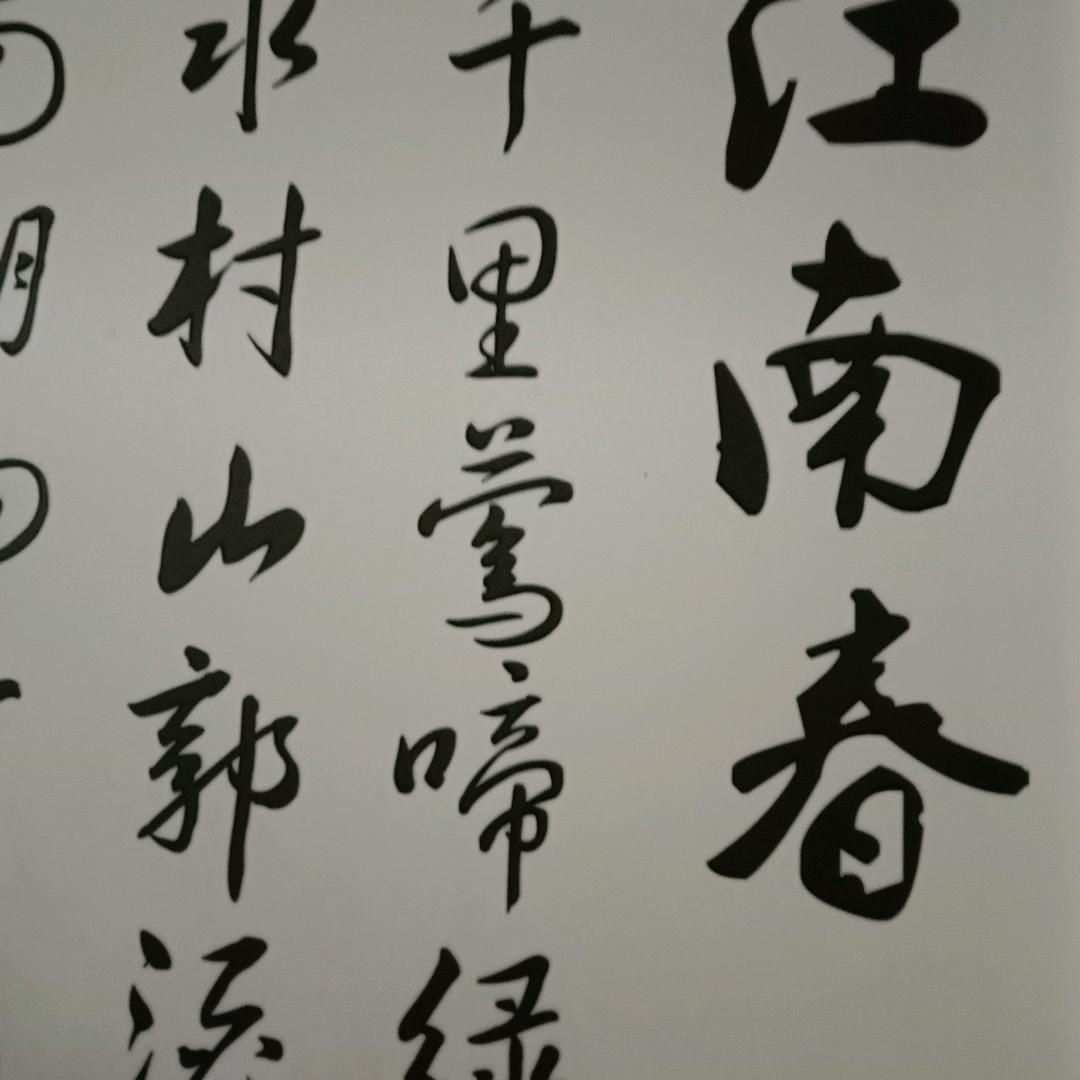 江南春
千里莺啼绿
水村山郭酒